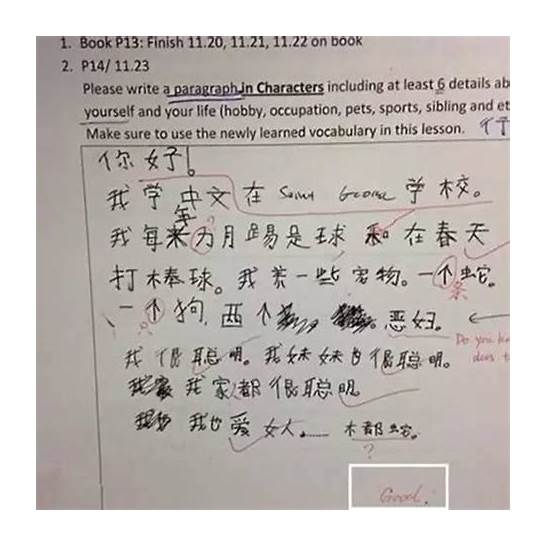 1. Book P13: Finish 11.20, 11.21, 11.22 on book
2. P14/ 11.23
Please write a paragraph in Characters including at least 6 details ab
yourself and your life (hobby, occupation, pets, sports, sibling and et
Make sure to use the newly learned vocabulary in this lesson.
你好!
我学中文在 Saint George 学校。
我每 月踢足球和在春天
打棒球。我养一些宠物。一个蛇。
一个狗,西个 恶妇。
我很聪明。我妹妹也很聪明。
我家都很聪明
我也爱女人...... 木都蛇。
?
条
只
Do you kn
does t
Good!